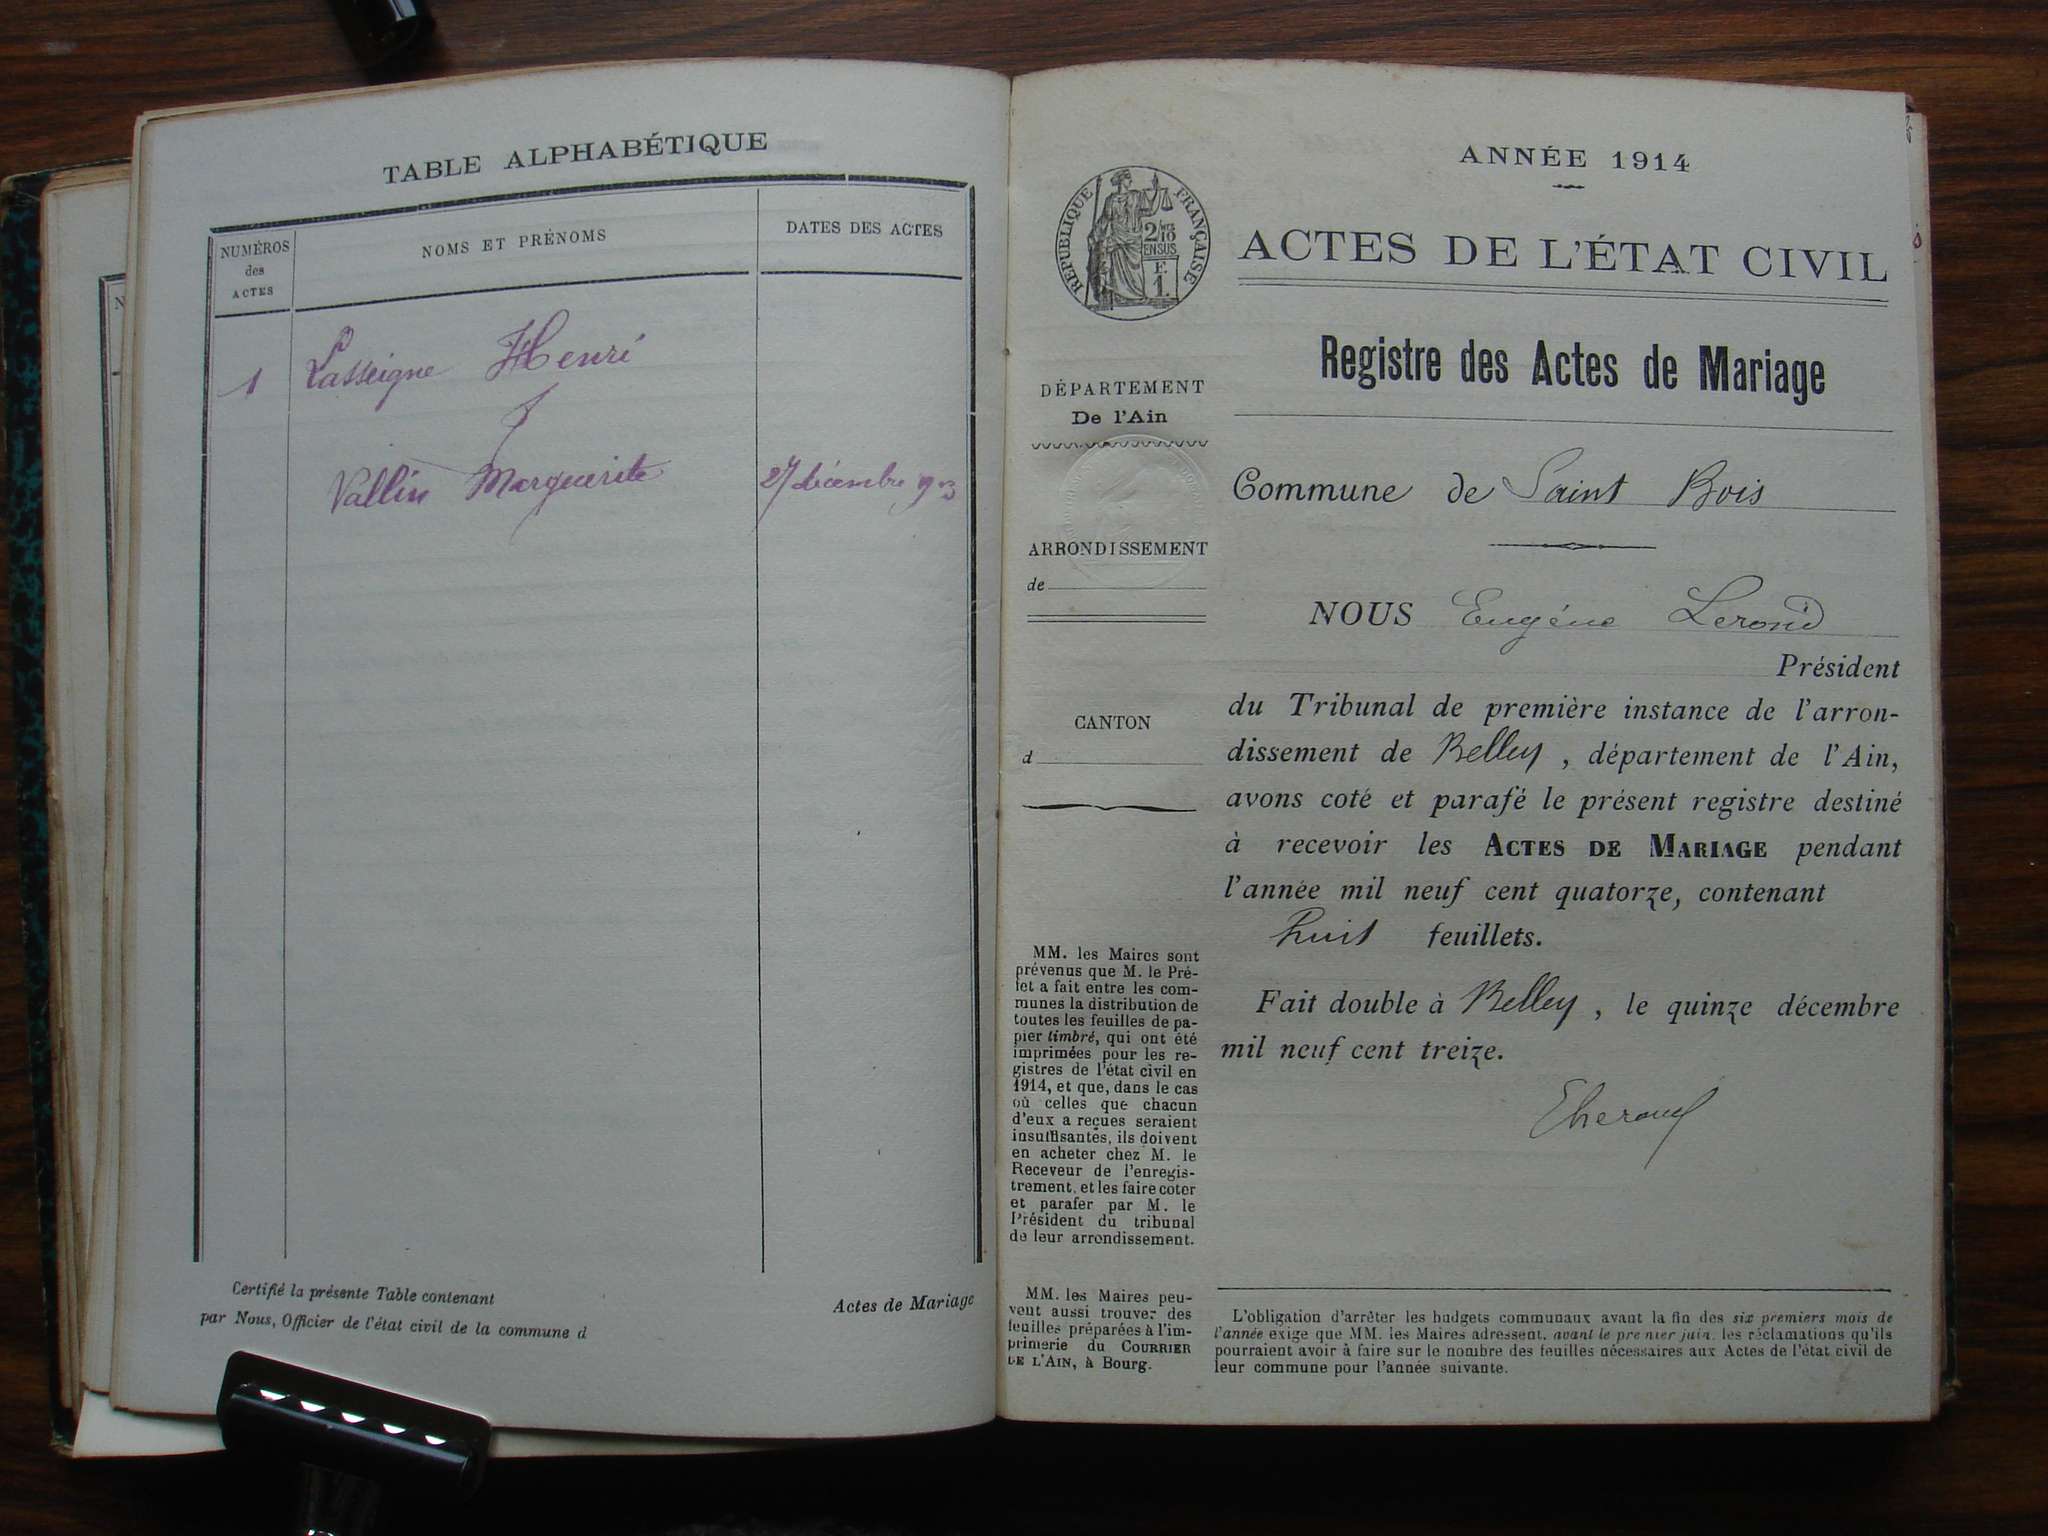 TABLE ALPHABÉTIQUE
NUMÉROS
des
ACTES
NOMS ET PRÉNOMS
DATES DES ACTES
1 Lasseigne Henri
Vallin Marguerite 27 décembre 1913
Certifié la présente Table contenant
Actes de Mariage
par Nous, Officier de l'état civil de la commune d
ANNÉE 1914
RÉPUBLIQUE FRANÇAISE
2/10
EN SUS
F.
1.
ACTES DE L'ÉTAT CIVIL
Registre des Actes de Mariage
DÉPARTEMENT
De l'Ain
Commune de Saint Bois
ARRONDISSEMENT
de
NOUS Eugéne
Président
CANTON
d
du Tribunal de première instance de l'arron-
dissement de Belley, département de l'Ain,
avons coté et parafé le présent registre destiné
à recevoir les ACTES DE MARIAGE pendant
l'année mil neuf cent quatorze, contenant
huit feuillets.
Fait double à Belley, le quinze décembre
mil neuf cent treize.
MM. les Maires sont
prévenus que M. le Pré-
fet a fait entre les com-
munes la distribution de
toutes les feuilles de pa-
pier timbré, qui ont été
imprimées pour les re-
gistres de l'état civil en
1914, et que, dans le cas
où celles que chacun
d'eux a reçues seraient
insuffisantes, ils doivent
en acheter chez M. le
Receveur de l'enregis-
trement, et les faire coter
et parafer par M. le
Président du tribunal
de leur arrondissement.
MM. les Maires peu-
vent aussi trouver des
feuilles préparées à l'im-
primerie du COURRIER
DE L'AIN, à Bourg.
L'obligation d'arrêter les budgets communaux avant la fin des six premiers mois de
l'année exige que MM. les Maires adressent, avant le premier juin, les réclamations qu'ils
pourraient avoir à faire sur le nombre des feuilles nécessaires aux Actes de l'état civil de
leur commune pour l'année suivante.